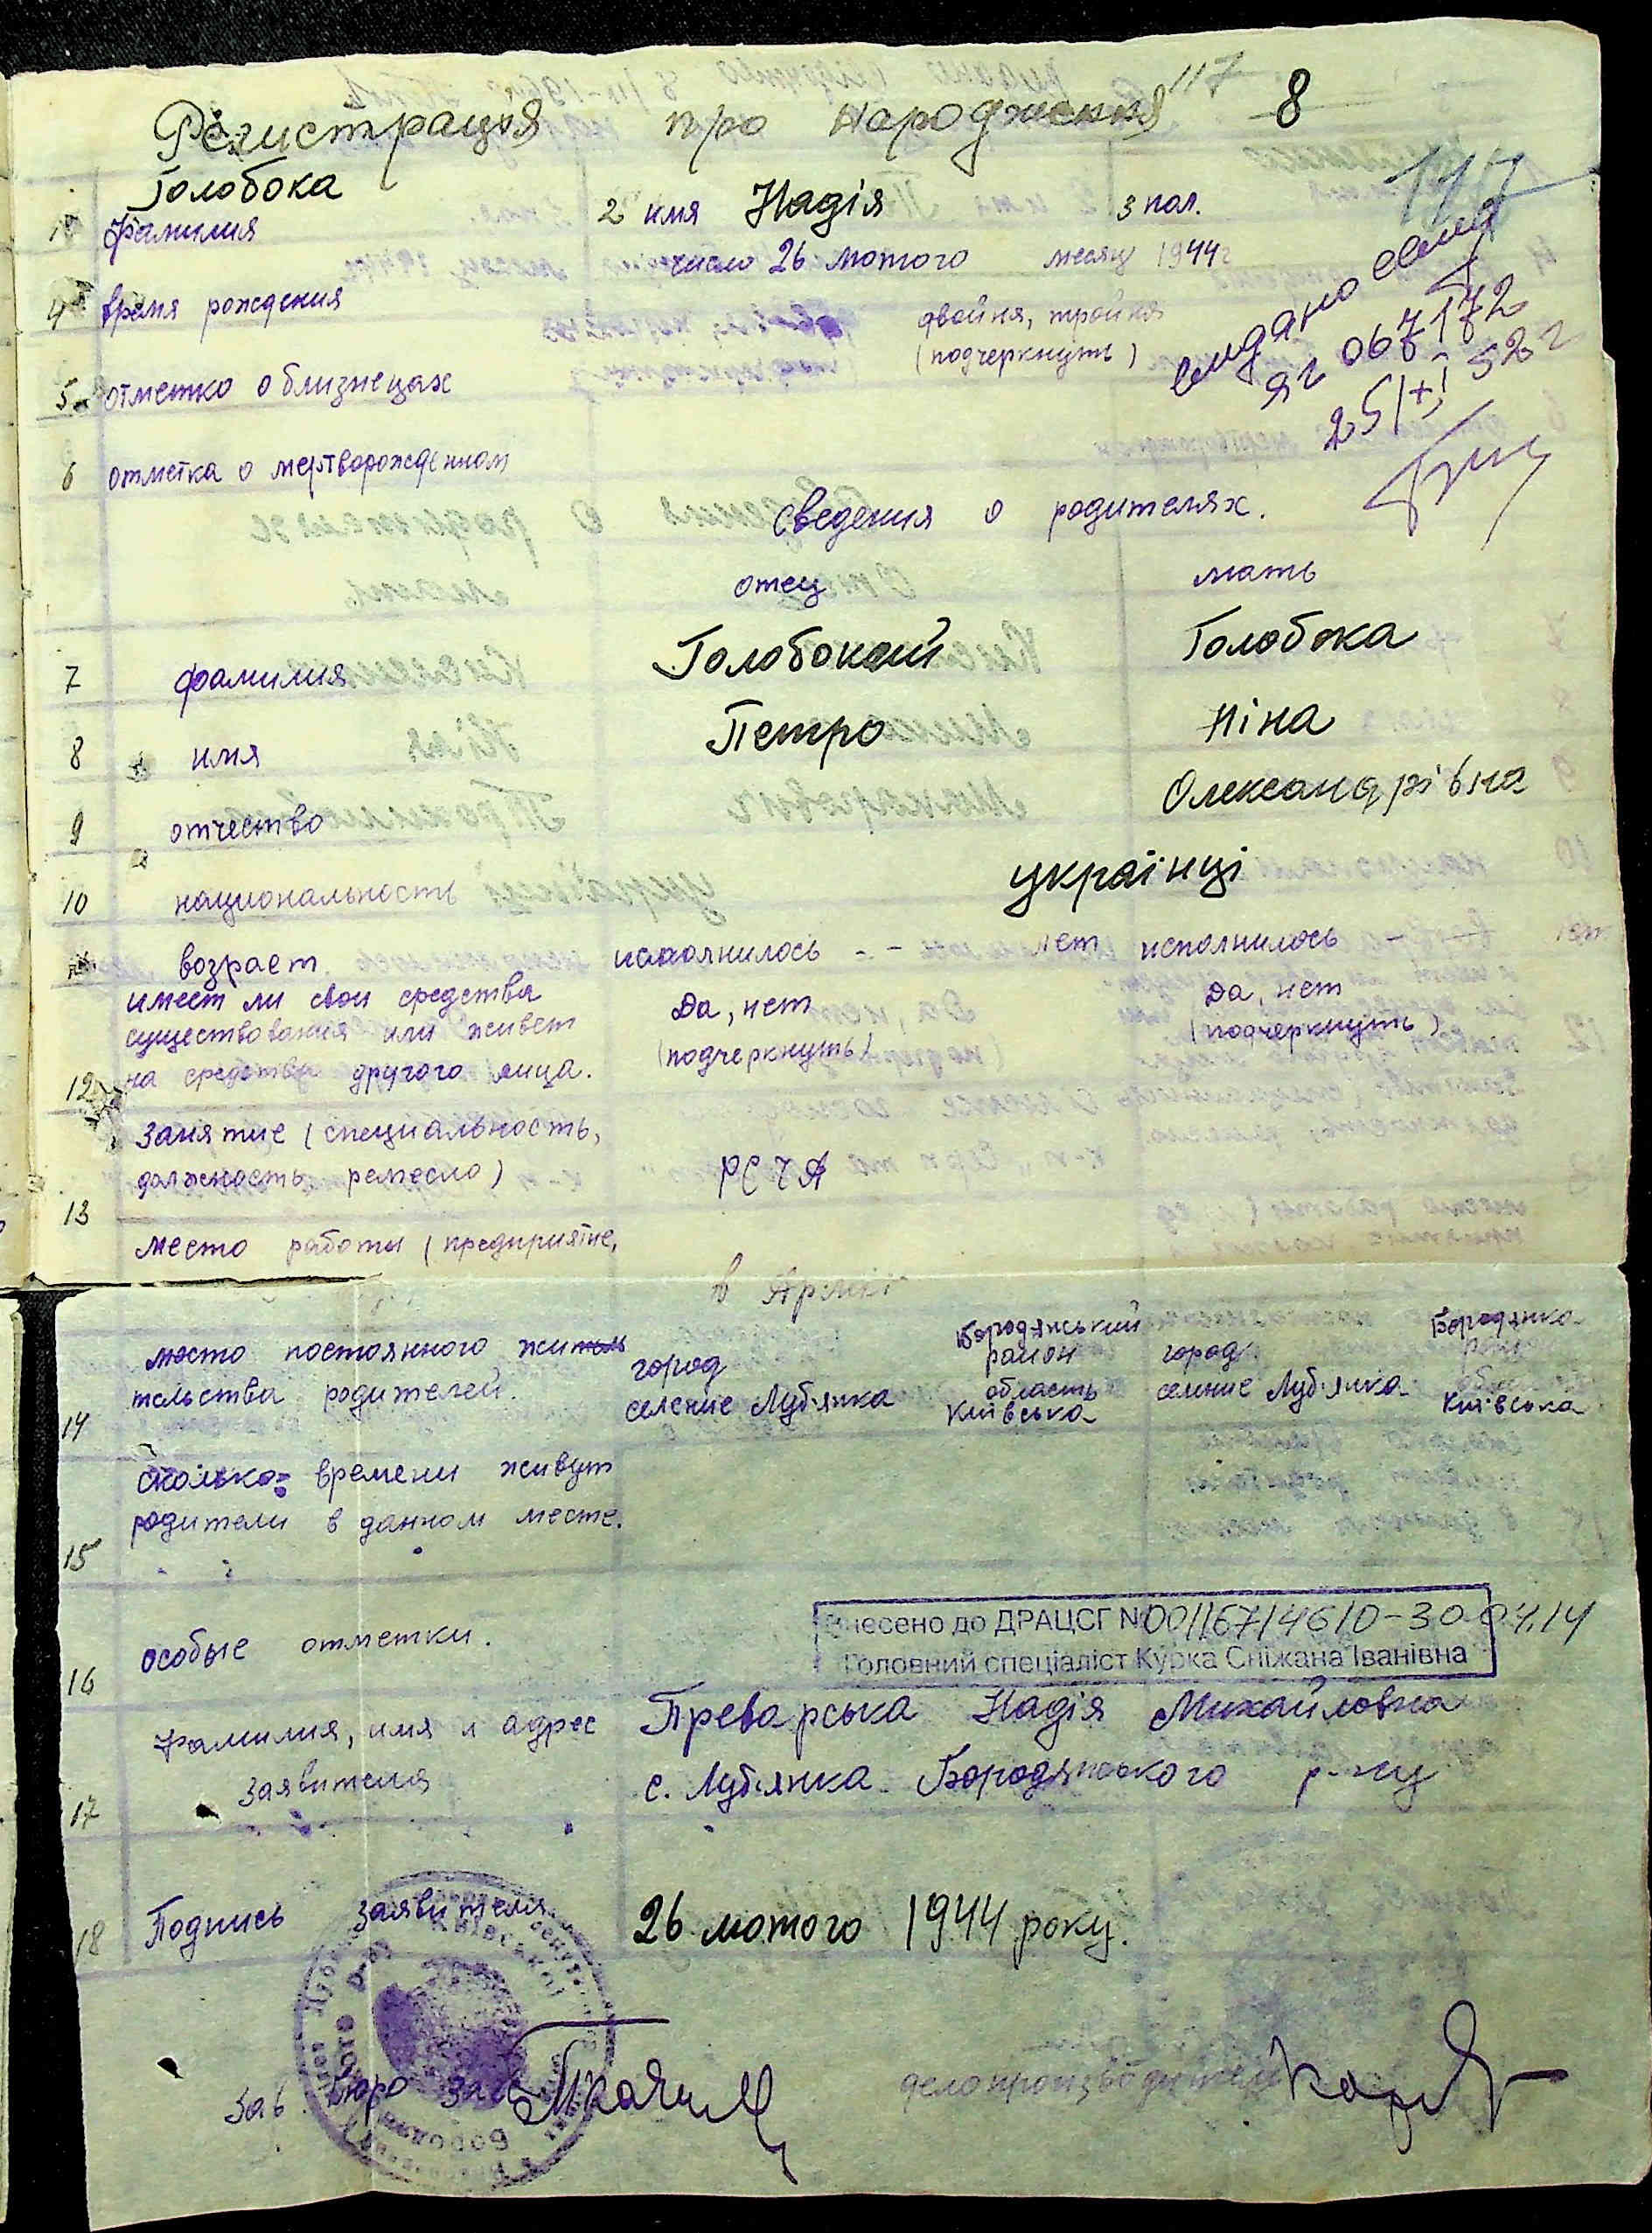 Регистрация про народження 117 8
Голобока 117
1 фамилия 2 имя Надія 3 пол.
4 время рождения число 26 лютого месяц 1944 г
двойня, тройня
5 отметка о близнецах (подчеркнуть)
видано свид
ЯГ 067172
25/XI 52 г
6 отметка о мертворожденном
Сведения о родителях.
отец мать
7 фамилия Голобокий Голобока
8 имя Петро Ніна
9 отчество Олександрівна
10 национальность українці
возраст исполнилось - - лет исполнилось - -
имеет ли свои средства Да, нет Да, нет
существования или живет (подчеркнуть) (подчеркнуть)
12 на средства другого лица.
занятие (специальность,
должность, ремесло) РСЧА
13
место работы (предприятие,
в Армії
место постоянного житель город Бородянський район город Бородянка
14 тельства родителей. селение Луб'янка область Київська селение Луб'янка Київська
Сколько времени живут
родители в данном месте.
15
16 особые отметки.
Внесено до ДРАЦСГ N 00116714610-30.04.14
Головний спеціаліст Курка Сніжана Іванівна
фамилия, имя и адрес Преварська Надія Михайловна
17 заявителя с. Луб'янка Бородянського р-ну
18 Подпись заявителя 26 лютого 1944 року.
Зав. бюро делопроизводитель